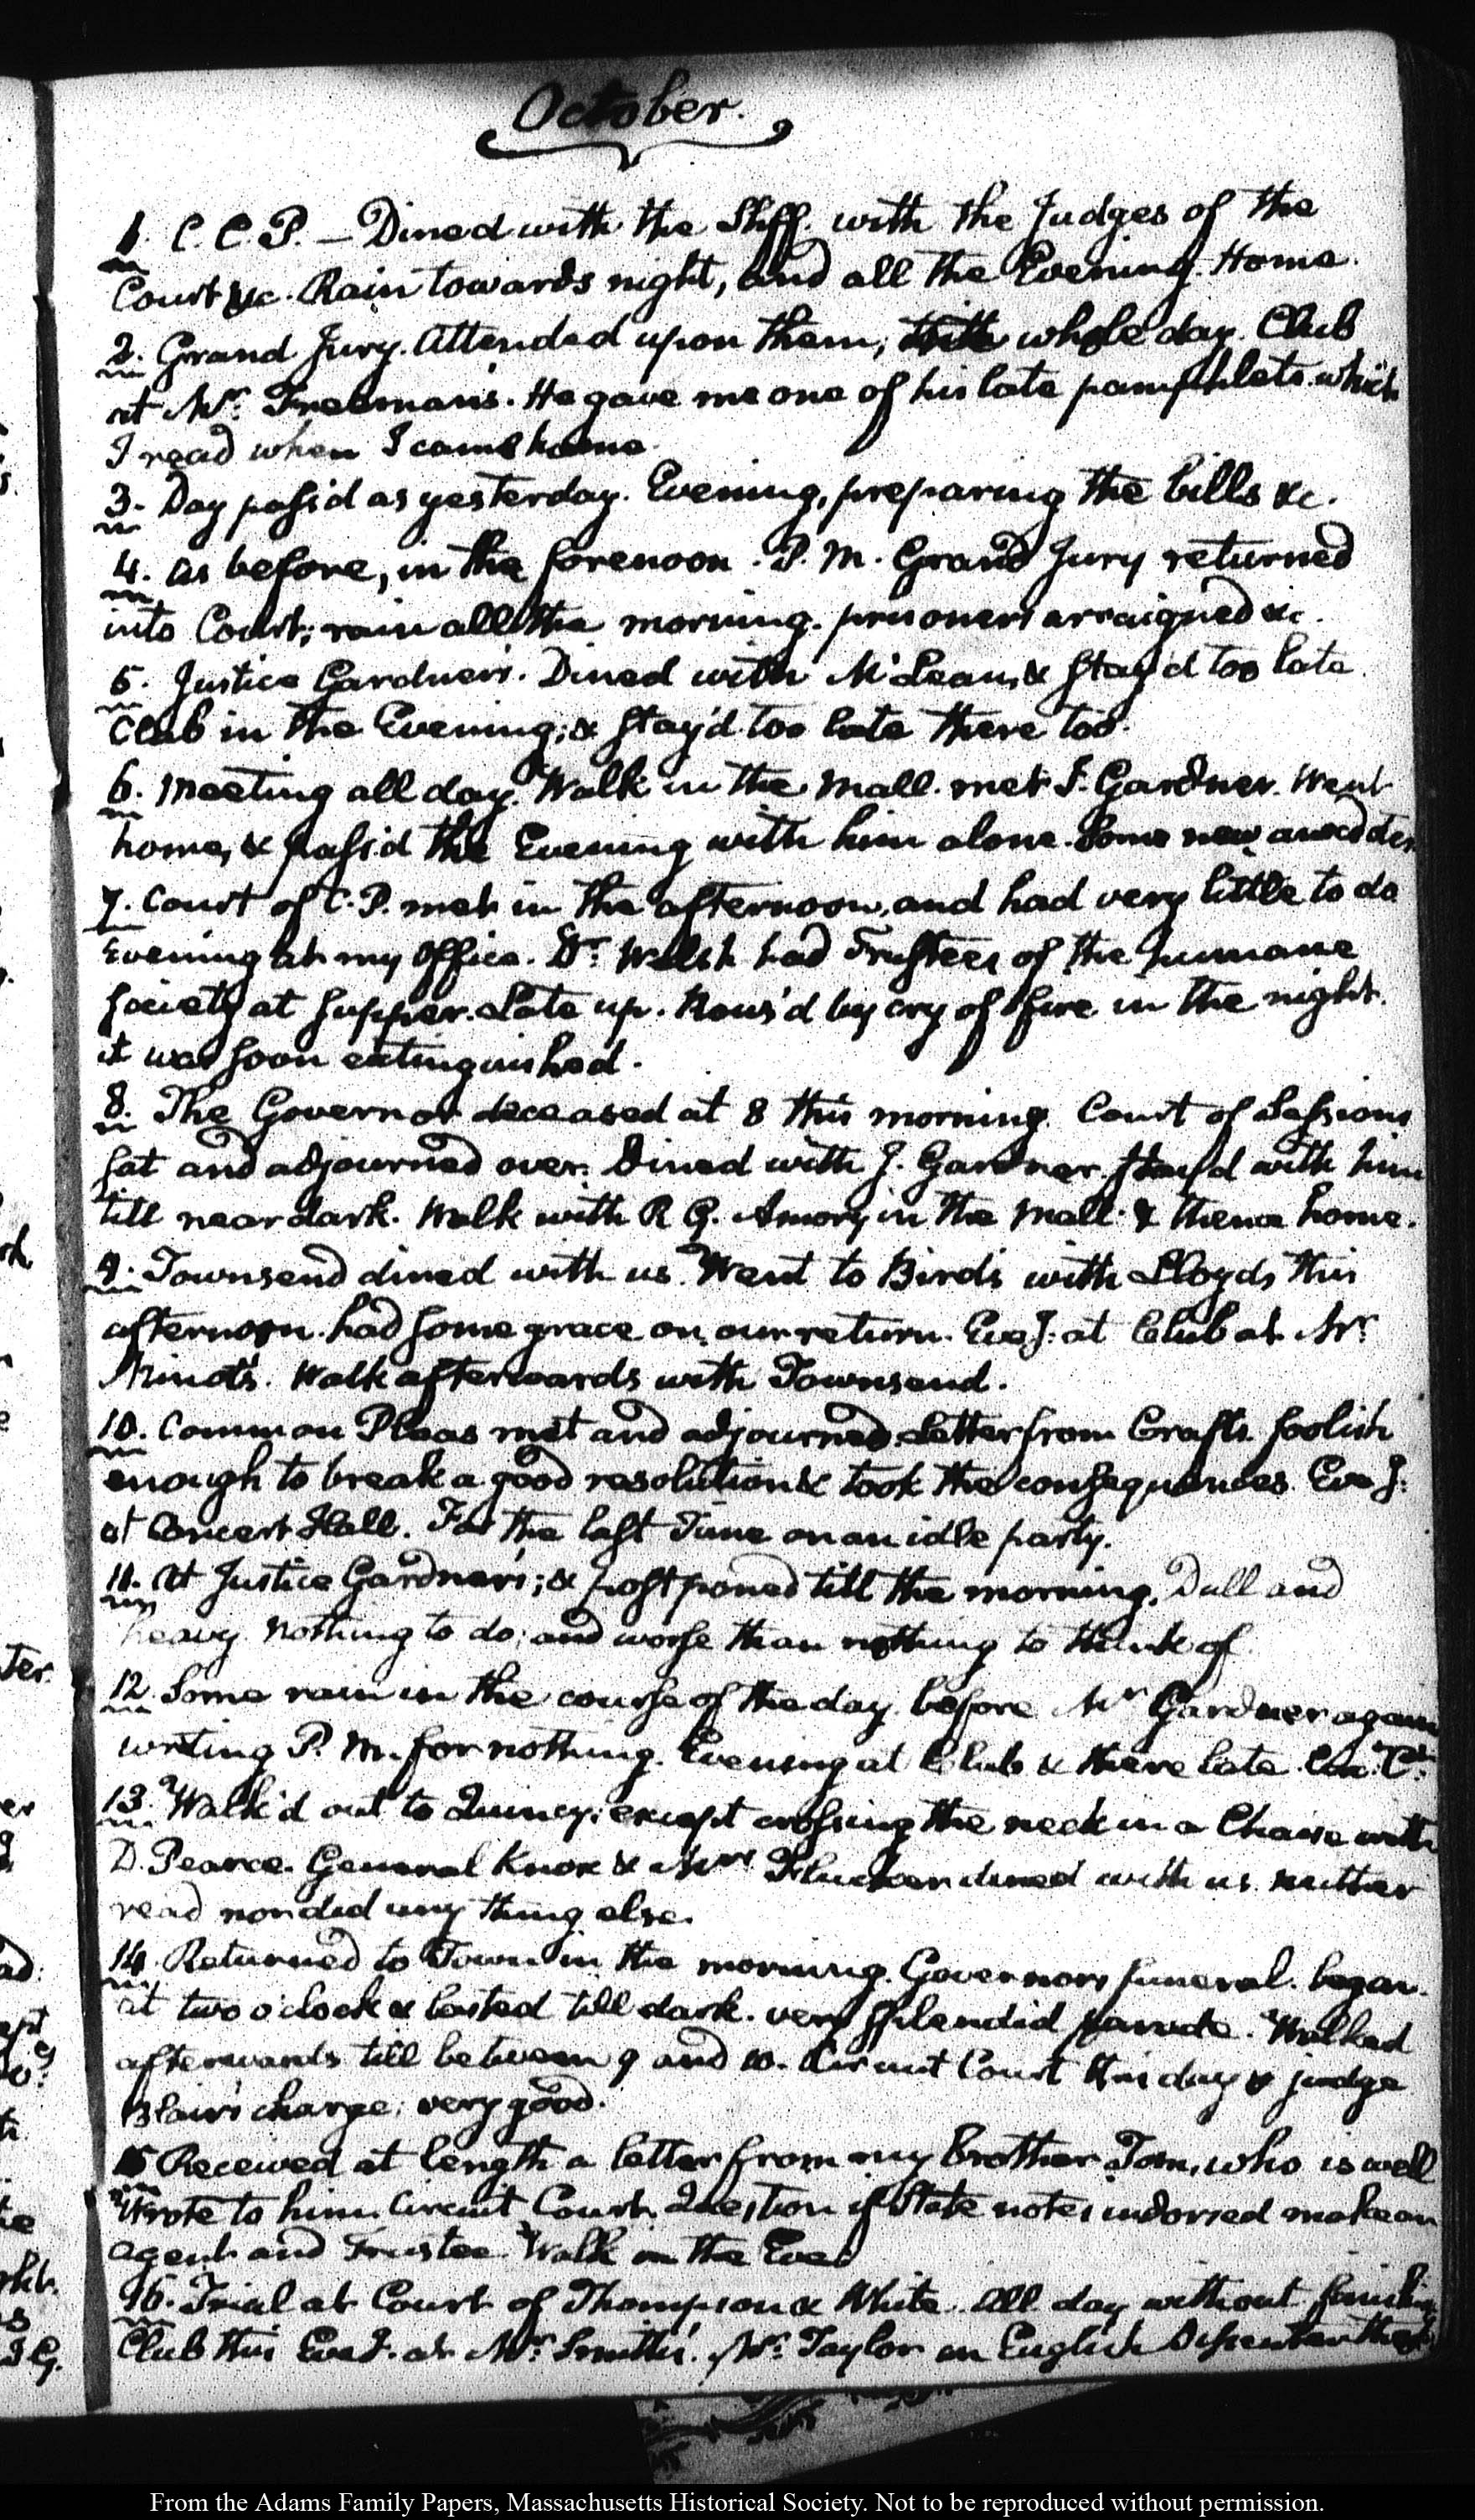 October.
1. C. C. P. — Dined with the Shff. with the Judges of the
Court &c. Rain towards night, and all the Evening. Home.
2. Grand Jury. Attended upon them, the whole day. Club
at Mr. Freeman's. He gave me one of his late pamphlets which
I read when I came home.
3. Day pass'd as yesterday. Evening, preparing the bills &c.
4. As before, in the forenoon. P. M. Grand Jury returned
into Court; rain all the morning. prisoners arraigned &c.
5. Justice Gardner's. Dined with McLean, & stay'd too late.
Club in the Evening; & stay'd too late there too.
6. Meeting all day. Walk in the Mall. met J. Gardner. Went
home, & pass'd the Evening with him alone. Some new anecdotes
7. Court of C. P. met in the afternoon, and had very little to do
Evening at my Office. Dr. Welsh had Trustees of the humane
society at supper. Late up. Rous'd by cry of fire in the night.
it was soon extinguished.
8. The Governor deceased at 8 this morning. Court of Sessions
sat and adjourned over. Dined with J. Gardner. stay'd with him
till near dark. Walk with R G. Amory in the Mall. & thence home.
9. Townsend dined with us. Went to Bird's with Lloyds this
afternoon. had some grace on our return. Eveg: at Club at Mr.
Minot's. Walk afterwards with Townsend.
10. Common Pleas met and adjourned. Letter from Crafts. foolish
enough to break a good resolution & took the consequences. Eveg:
at Concert Hall. For the last Time on an idle party.
11. At Justice Gardner's; & postponed till the morning. Dull and
heavy. Nothing to do; and worse than nothing to think of.
12. Some rain in the course of the day. before Mr Gardner again
writing P. M. for nothing. Evening at Club & there late.
13. Walk'd out to Quincy; except crossing the neck in a Chaise with
D. Pearce. General Knox & Mrs Flucker dined with us. neither
read nor did any thing else.
14. Returned to Town in the morning. Governors funeral. began
at two o'clock & lasted till dark. very splendid parade. Walked
afterwards till between 9 and 10. Circuit Court this day & judge
Blair's charge; very good.
15 Received at length a letter from my Brother Tom, who is well
Wrote to him. Circuit Court. Question if State notes indorsed make an
agent and Trustee. Walk in the Eveg
16. Trial at Court of Thompson & White. All day without finishing
Club this Eveg. at Mr. Smith's. Mr. Taylor an English Dissenter there
From the Adams Family Papers, Massachusetts Historical Society. Not to be reproduced without permission.